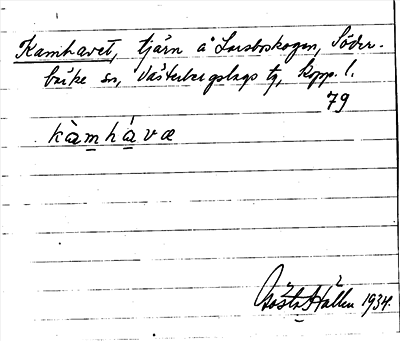 Kamhavet, tjärn å Larsboskogen, Söder-
bärke sn, Västerbergslags tg, Kopp. l.
79
kàmhávæ
Gösta Hallén 1934.